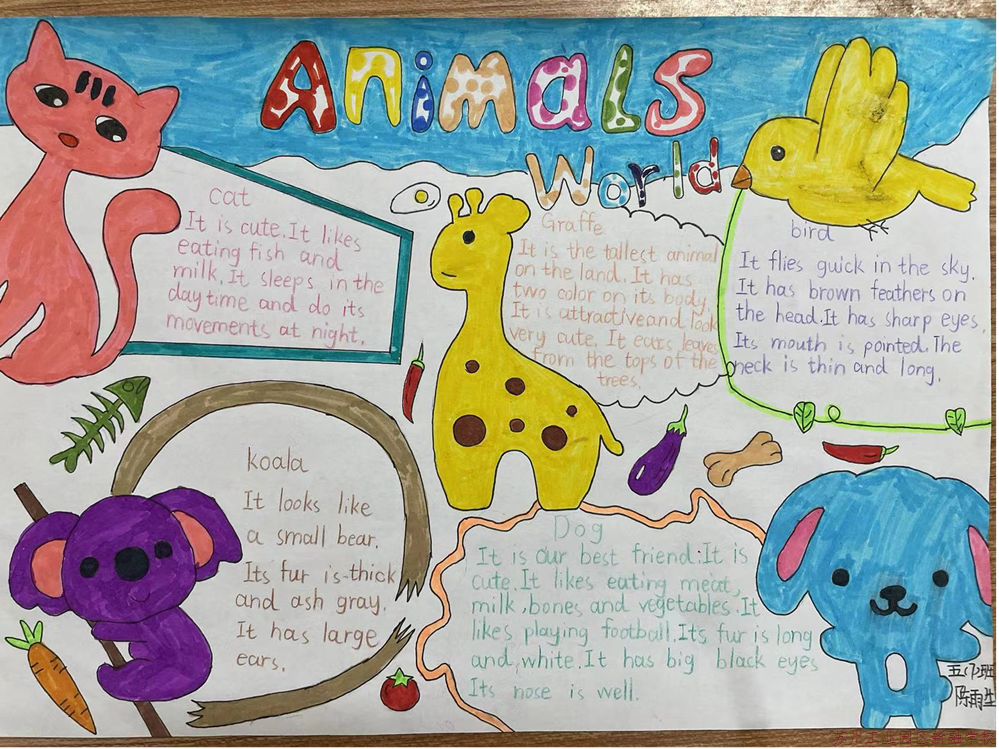 Animals
World
cat
It is cute. It likes
eating fish and
milk. It sleeps in the
daytime and do its
movements at night.
Graffe
It is the tallest animal
on the land. It has
two color on its body
It is attractive and look
very cute. It eats leaves
from the tops of the
trees.
bird
It flies quick in the sky.
It has brown feathers on
the head. It has sharp eyes.
Its mouth is pointed. The
neck is thin and long.
koala
It looks like
a small bear.
Its fur is thick
and ash gray.
It has large
ears.
Dog
It is our best friend. It is
cute. It likes eating meat,
milk, bones and vegetables. It
likes playing football. Its fur is long
and, white. It has big black eyes
Its nose is well.